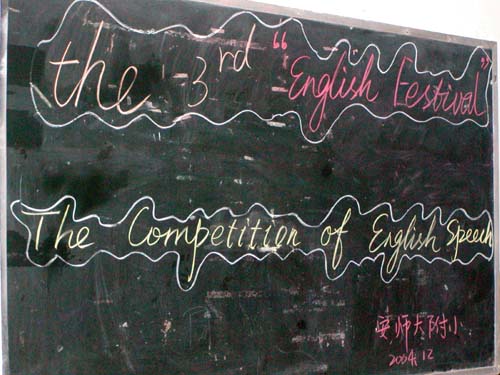 the 3rd "English Festival"
The Competition of English Speech
安师大附小
2004.12